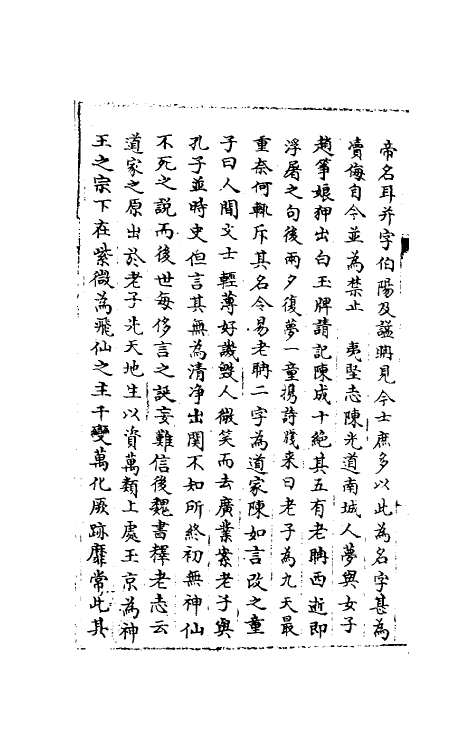 帝名耳并字伯陽及諡聃見今士庶多以此為名字甚為
凟侮自今並為禁止　夷堅志陳光道南城人夢與女子
趙筝娘狎出白玉牌請記陳成十絕其五有老聃西逝即
浮屠之句後兩夕復夢一童携詩牋来曰老子為九天最
重奈何軌斥其名令易老聃二字為道家陳如言改之童
子曰人間文士輕薄好譏毀人微笑而去廣業案老子與
孔子並時史但言其無為清净出関不知所終初無神仙
不死之說而後世每侈言之誕妄難信後魏書釋老志云
道家之原出於老子先天地生以資萬類上處玉京為神
王之宗下在紫微為飛仙之主千變萬化厥跡靡常此其